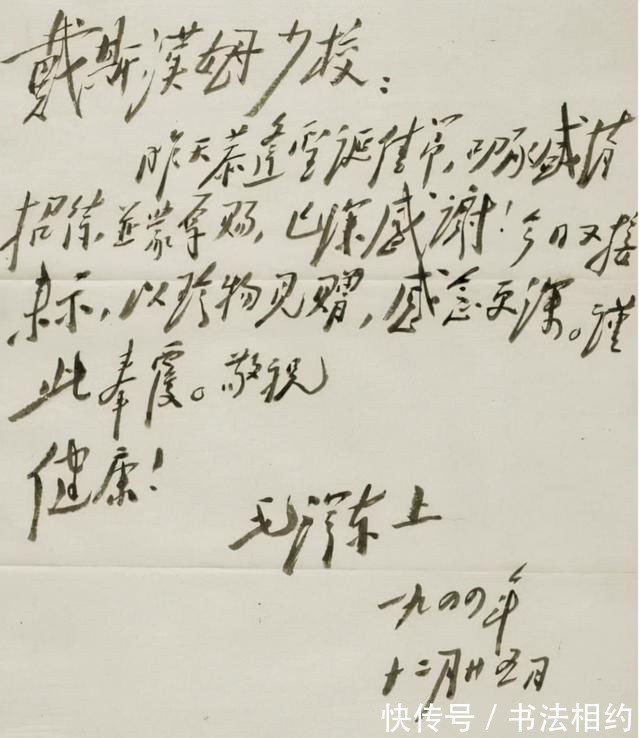 戴斯漢姆少校：
昨天恭逢聖诞佳节，叨承盛
招待，並蒙厚赐，已深感谢！今日又接
来示，以珍物见，感念更深。谨
此奉覆。敬祝
健康！
毛泽东上
一九四四年
十二月廿五日
快传号 / 书法相约